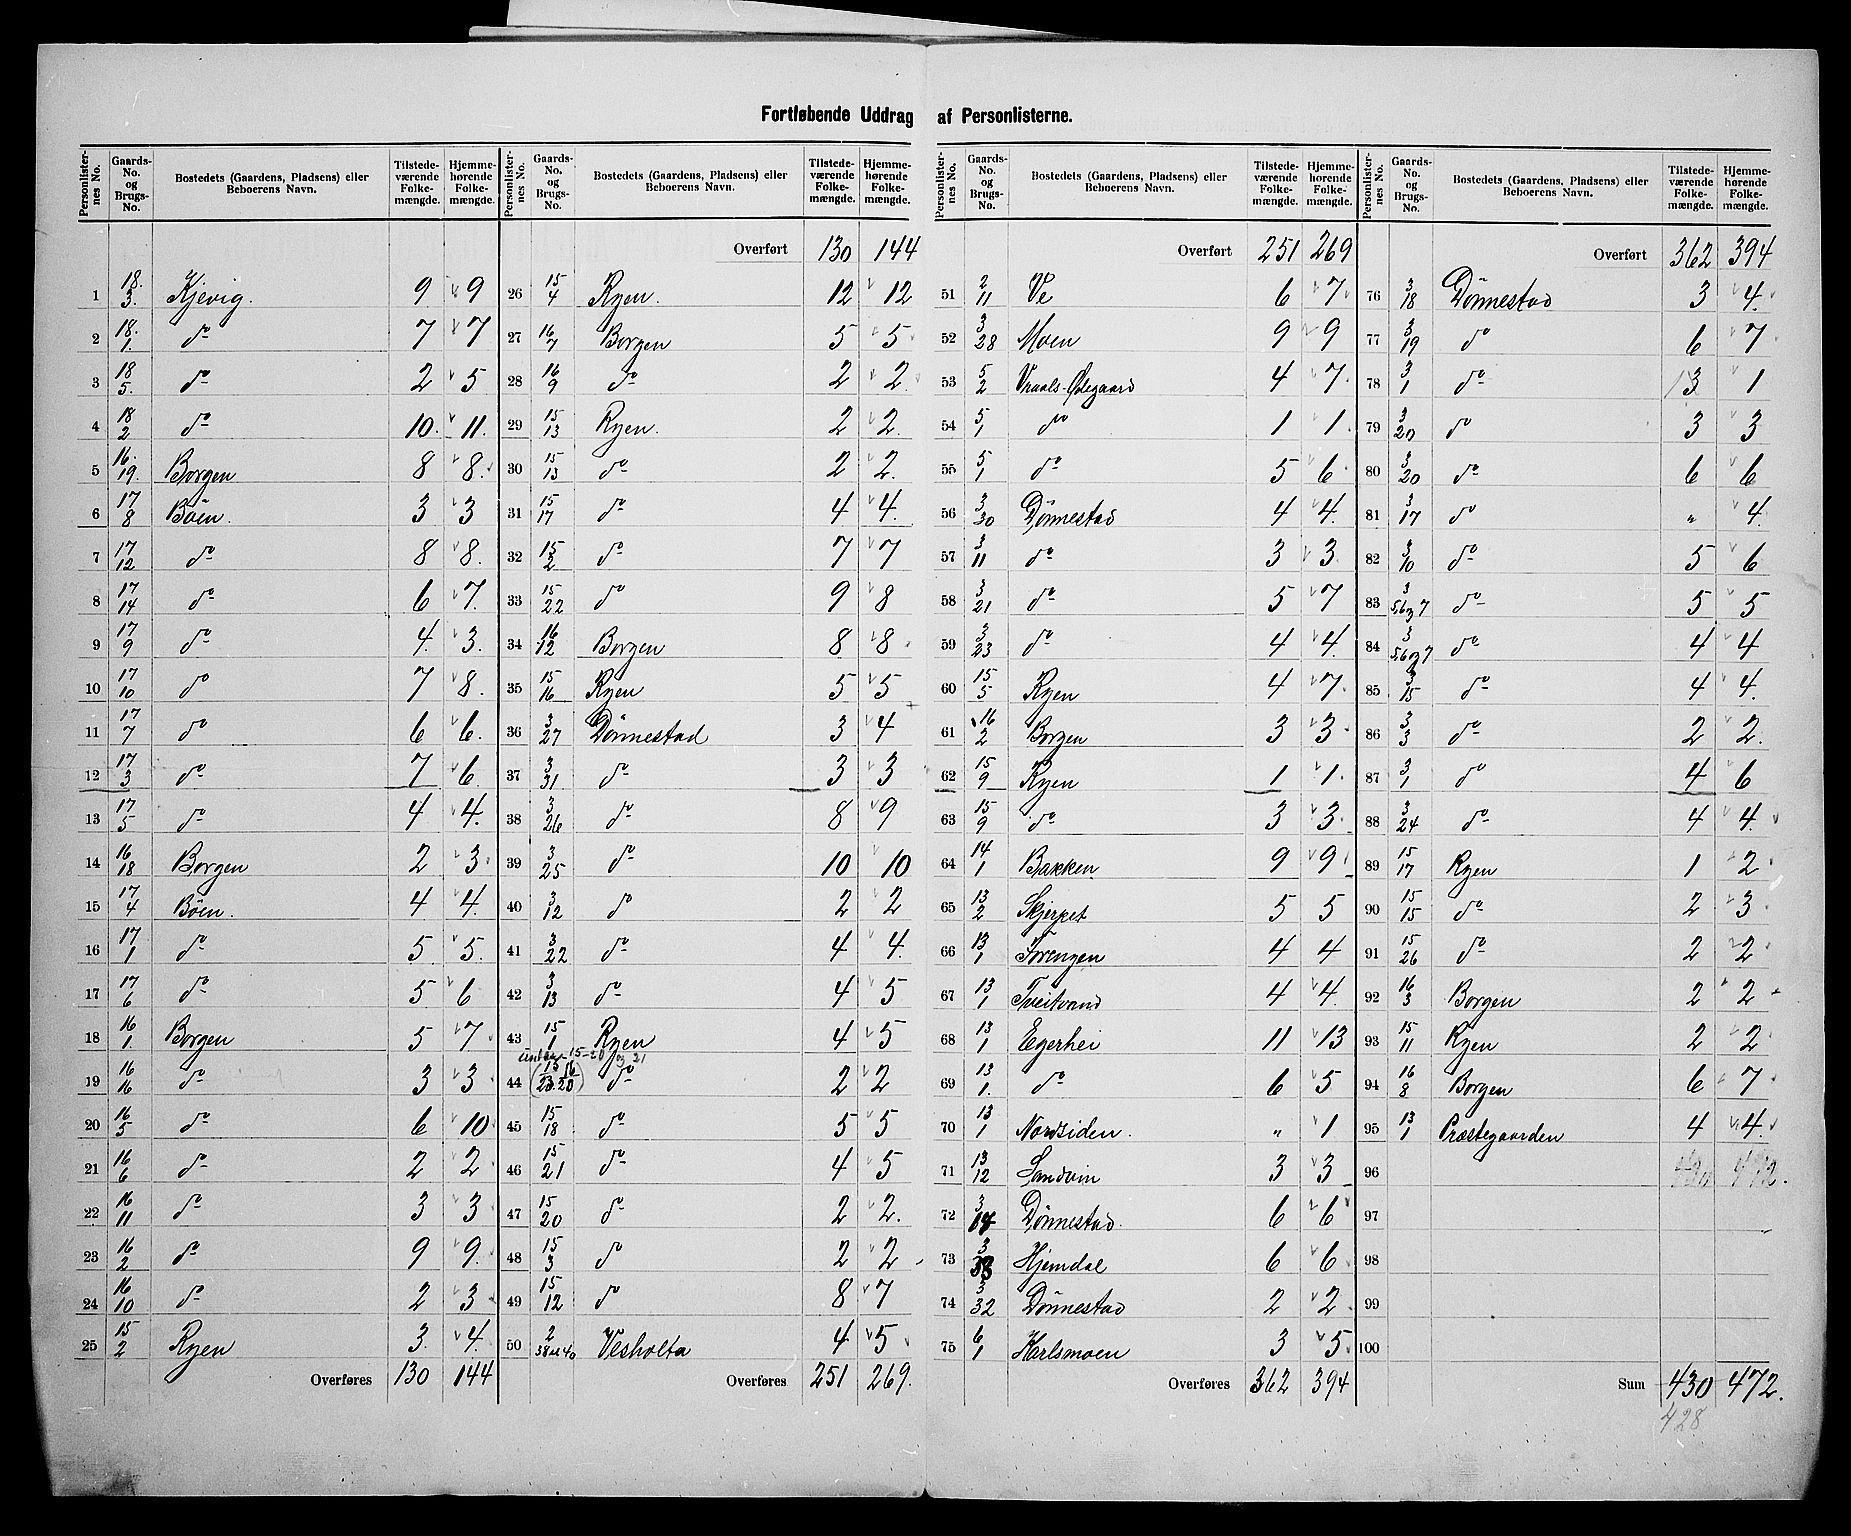 Fortløbende Uddrag af Personlisterne.
Personlister-nes No. | Gaards-No. og Brugs-No. | Bostedets (Gaardens, Pladsens) eller Beboerens Navn. | Tilstede-værende Folke-mængde. | Hjemme-hørende Folke-mængde.
1 18/3 Kjevig. 9 9
2 18/1 do 7 7
3 18/5 do 2 5
4 18/2 do 10 11
5 16/19 Borgen 8 8
6 17/8 Böen. 3 3
7 17/12 do 8 8
8 17/14 do 6 7
9 17/9 do 4 3
10 17/10 do 7 8
11 17/7 do 6 6
12 17/3 do 7 6
13 17/5 do 4 4
14 16/18 Borgen 2 3
15 17/4 Böen. 4 4
16 17/1 do 5 5
17 17/6 do 5 6
18 16/1 Borgen 5 7
19 16/16 do 3 3
20 16/5 do 6 10
21 16/6 do 2 2
22 16/11 do 3 3
23 16/2 do 9 9
24 16/10 do 2 3
25 15/2 Ryen 3 4
Overføres 130 144
Personlister-nes No. | Gaards-No. og Brugs-No. | Bostedets (Gaardens, Pladsens) eller Beboerens Navn. | Tilstede-værende Folke-mængde. | Hjemme-hørende Folke-mængde.
Overført 130 144
26 15/4 Ryen. 12 12
27 16/7 Borgen 5 5
28 16/9 do 2 2
29 15/13 Ryen. 2 2
30 15/13 do 2 2
31 15/17 do 4 4
32 15/2 do 7 7
33 15/22 do 9 8
34 16/12 Borgen 8 8
35 15/16 Ryen 5 5
36 3/27 Dönnestad 3 4
37 3/31 do 3 3
38 3/26 do 8 9
39 3/25 do 10 10
40 3/12 do 2 2
41 3/22 do 4 4
42 3/13 do 4 5
43 15/1 Ryen 4 5
15-20 og 21
44 do 2 2
45 15/18 do 5 5
46 15/21 do 4 5
47 15/20 do 2 2
48 15/3 do 2 2
49 15/12 do 8 7
50 2/38 40 Vesholta 4 5
Overføres 251 269.
Personlister-nes No. | Gaards-No. og Brugs-No. | Bostedets (Gaardens, Pladsens) eller Beboerens Navn. | Tilstede-værende Folke-mængde. | Hjemme-hørende Folke-mængde.
Overført 251 269
51 2/11 Ve 6 7
52 3/28 Moen 9 9
53 5/2 Vraals-Ødegaard 4 7
54 5/1 do 1 1
55 5/1 do 5 6
56 3/30 Dönnestad 4 4
57 3/11 do 3 3
58 3/21 do 5 7
59 3/23 do 4 4
60 15/5 Ryen 4 7
61 16/2 Borgen 3 3
62 15/9 Ryen 1 1
63 15/9 do 3 3
64 14/1 Bakken 9 9
65 13/2 Skjerpet 5 5
66 13/1 Torengen 4 4
67 13/1 Tveitvand 4 4
68 13/1 Egerhei 11 13
69 13/1. do 6 5
70 13/1 Nordsiden. " 1
71 13/12 Sandvin 3 3
72 3/14 Dönnestad. 6 6
73 3/33 Hjemdal 6 6
74 3/32 Dönnestad 2 2
75 6/1 Karlsmoen 3 5
Overføres 362 394
Personlister-nes No. | Gaards-No. og Brugs-No. | Bostedets (Gaardens, Pladsens) eller Beboerens Navn. | Tilstede-værende Folke-mængde. | Hjemme-hørende Folke-mængde.
Overført 362 394
76 3/18 Dönnestad 3 4
77 3/19 do 6 7
78 3/1 do 3 1
79 3/20 do 3 3
80 3/20 do 6 6
81 3/17 do " 4
82 3/10 do 5 6
83 3/5,6 og 7 do 5 5
84 3/5,6 og 7 do 4 4
85 3/15 do 4 4
86 3/3 do 2 2
87 3/1 do 4 6
88 3/24 do 4 4
89 15/17 Ryen 1 2
90 15/15 do 2 3
91 15/26 do 2 2
92 16/3 Borgen 2 2
93 15/11 Ryen 2 2
94 16/8 Borgen 6 7
95 13/1 Præstegaarden 4 4
96 430 472.
97
98
99
100
Sum 430 472.
428